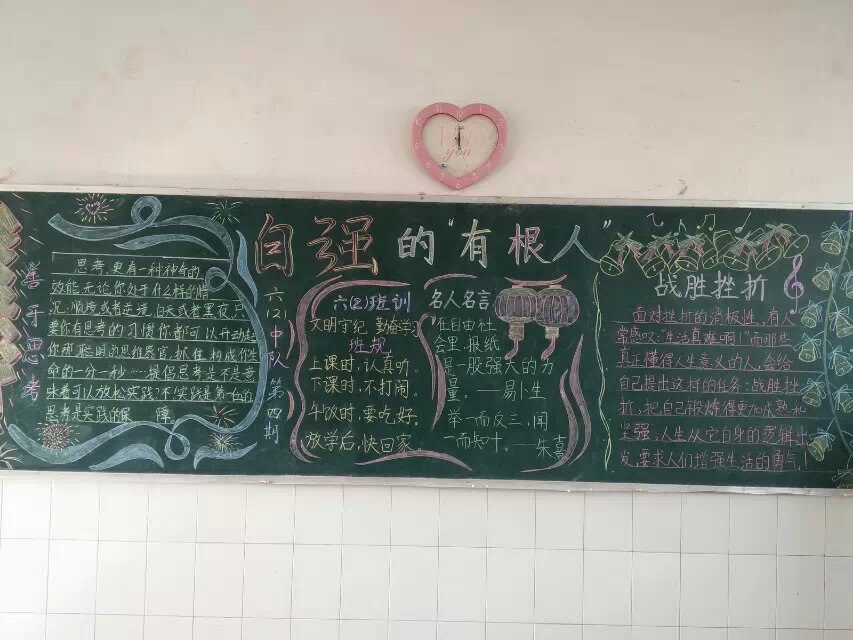 自强的“有根人”
善于思考
思考,更有一种神奇的
效能,无论你处于什么样的情
况:顺境或者逆境,白天或者黑夜,只
要你有思考的习惯你都可以开动起
你那聪明的思维器官,抓住构成你生
命的一分一秒……提倡思考并不是意
味着可以放松实践,不,实践是第一位的
思考是实践的保障
六(2)中队第四期
六(2)班训
文明守纪 勤奋学习
班规
上课时,认真听。
下课时,不打闹。
午饭时,要吃好。
放学后,快回家。
名人名言
在自由社
会里,报纸
是一股强大的力
量。——易卜生
举一而反三,闻
一而知十。——朱熹
战胜挫折
面对挫折的消极性,有人
常感叹:“生活真难啊!”而那些
真正懂得人生意义的人,会给
自己提出这样的任务:战胜挫
折,把自己锻炼得更加成熟和
坚强,人生从它自身的逻辑出
发,要求人们增强生活的勇气!
you